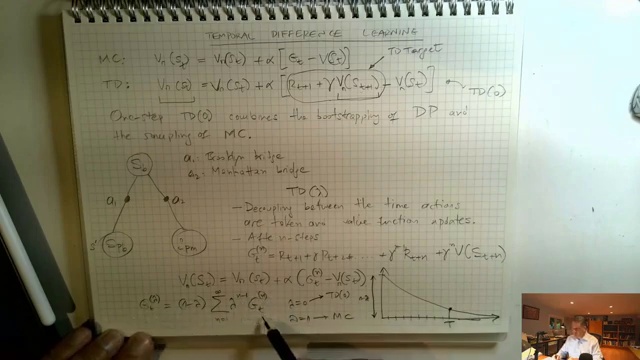 TEMPORAL DIFFERENCE LEARNING
MC: Vπ(St) = Vπ(St) + α [Gt - V(St)]
TD Target
TD: Vπ(St) = Vπ(St) + α [Rt+1 + γVπ(St+1) - Vπ(St)]
TD(0)
One-step TD(0) combines the bootstrapping of DP and
the sampling of MC.
S6
a1: Brooklyn bridge
a2: Manhattan bridge
a1
a2
TD(λ)
- Decoupling between the time actions
are taken and value function updates.
- After n-steps
Gt(n) = Rt+1 + γ Rt+2 + ... + γ^n-1 Rt+n + γ^n V(St+n)
Vπ(St) = Vπ(St) + α (Gt(n) - Vπ(St))
= (1-λ) ∑ n=1 ∞ λ^n-1 Gt(n)
λ=0 → TD(0)
λ=1 → MC
1-λ
T